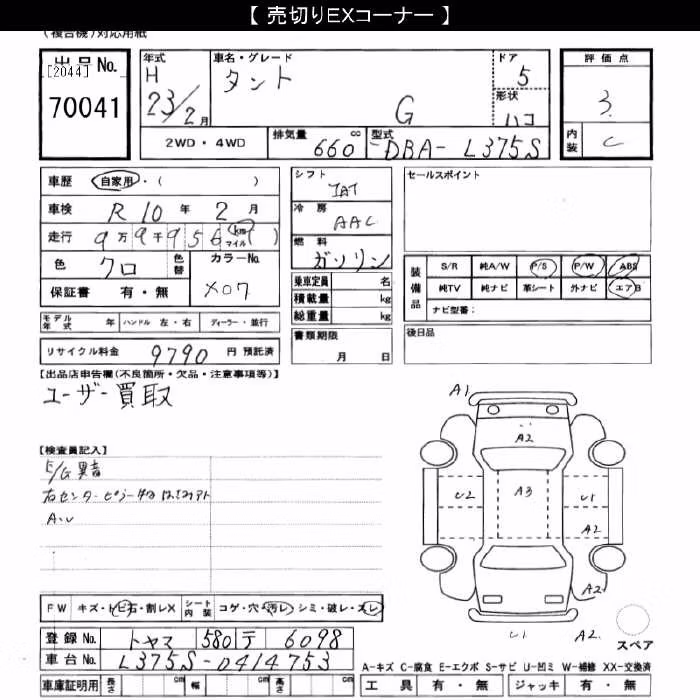 【 売切りEXコーナー 】
(複合機)対応用紙
出品No. [2044] 70041
年式 H 23/2月
車名・グレード タント G
ドア 5
形状 ハコ
評価点 3
内装 C
2WD・4WD
排気量 660 cc
型式 DBA- L375S
車歴 自家用・( )
車検 R 10 年 2 月
走行 9万9千956 km マイル ( )
色 クロ 色替
カラーNo. X07
保証書 有・無
シフト IAT
冷房 AAC
燃料 ガソリン
乗車定員 名
積載量 kg
総重量 kg
セールスポイント
装備品 S/R 純A/W P/S P/W ABS
純TV 純ナビ 革シート 外ナビ エアB
ナビ型番:
モデル年式 年 ハンドル 左・右 ディーラー・並行
書類期限 月 日
後日品
リサイクル料金 9790 円 預託済
【出品店申告欄(不良箇所・欠品・注意事項等)】
ユーザー買取
A1
A2
【検査員記入】
E/G異音
右センターピラー
U2 A3 U1
A2
A2
U1 A2
スペア
FW キズ・トビ石・割レX シート内装 コゲ・穴・汚レ・シミ・破レ・スレ
登録No. トヤマ 580 テ 6098
車台No. L375S-0414753
A-キズ C-腐食 E-エクボ S-サビ U-凹ミ W-補修 XX-交換済
車庫証明用 長さ cm 幅 cm 高さ cm
工具 有・無 ジャッキ 有・無